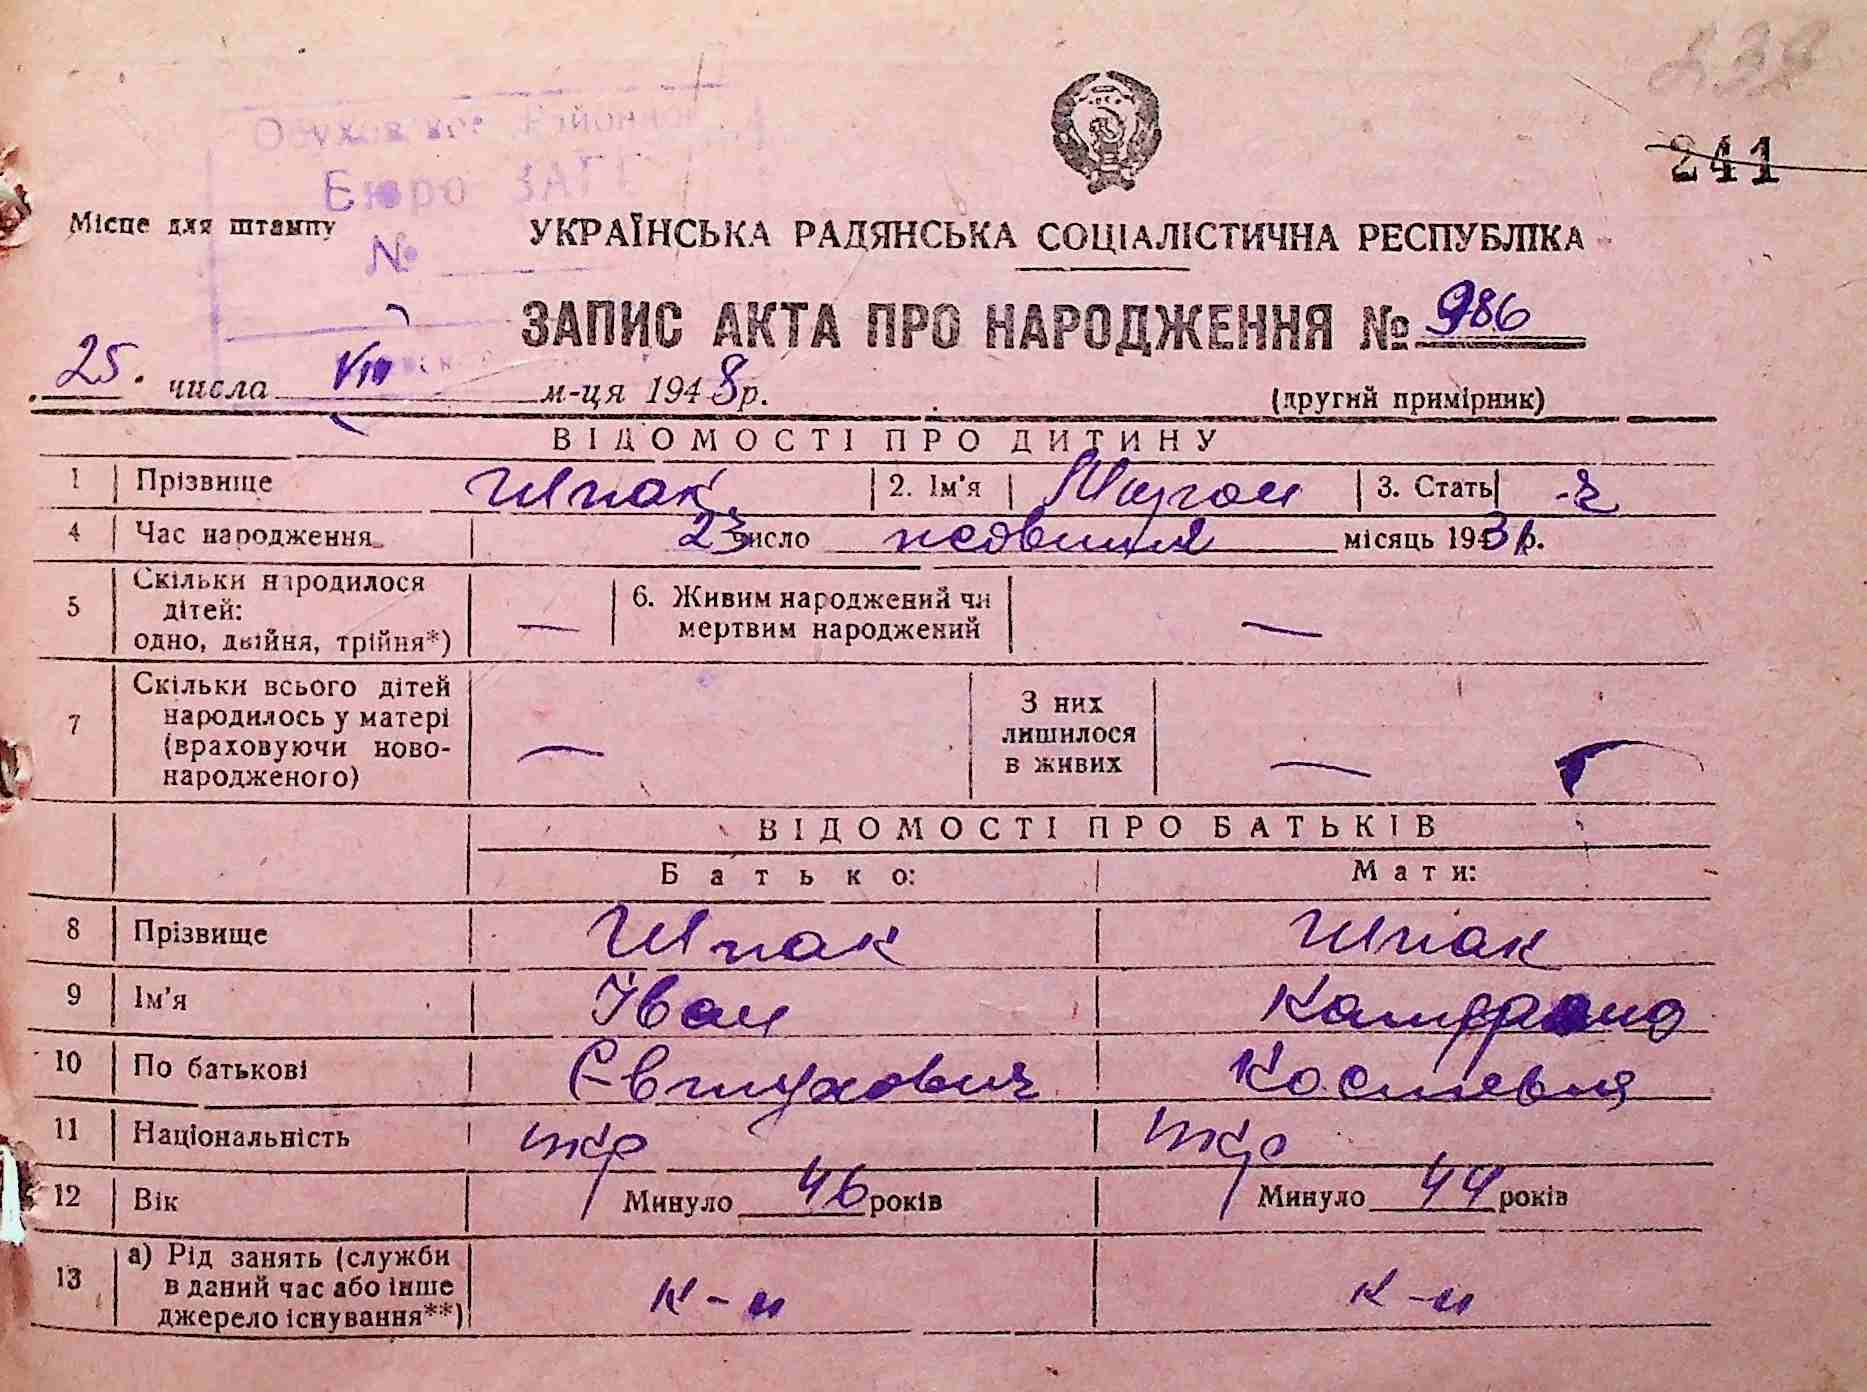 238
241
Обуховское Районное
Бюро ЗАГС
№
Місце для штампу
УКРАЇНСЬКА РАДЯНСЬКА СОЦІАЛІСТИЧНА РЕСПУБЛІКА
ЗАПИС АКТА ПРО НАРОДЖЕННЯ № 986
25. числа VIII м-ця 1948 р.
(другий примірник)
ВІДОМОСТІ ПРО ДИТИНУ
1 Прізвище Шпак 2. Ім'я 3. Стать ч
4 Час народження 23 число жовтня місяць 1931 р.
5 Скільки народилося дітей: одно, двійня, трійня*) — 6. Живим народжений чи мертвим народжений —
7 Скільки всього дітей народилось у матері (враховуючи новонародженого) — З них лишилося в живих —
ВІДОМОСТІ ПРО БАТЬКІВ
Батько: Мати:
8 Прізвище Шпак Шпак
9 Ім'я Іван
10 По батькові Євтухович Костевна
11 Національність укр укр
12 Вік Минуло 46 років Минуло 44 років
13 а) Рід занять (служби в даний час або інше джерело існування**) к-к к-к